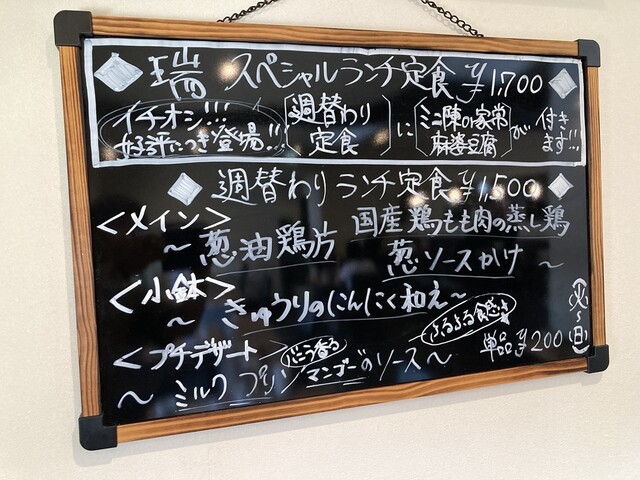 瑞 スペシャルランチ定食 ¥1,700
イチオシ!!! 好評につき登場!!!
週替わり定食 に ミニ陳or家常麻婆豆腐 が 付きます!!
週替わりランチ定食 ¥1,500
<メイン>
～葱油鶏片 国産鶏もも肉の蒸し鶏
葱ソースかけ～
<小鉢>
～きゅうりのにんにく和え～
<プチデザート>
バニラ香る ぷるぷる食感♪
～ミルクプリン マンゴーのソース～
単品¥200
(火～日)